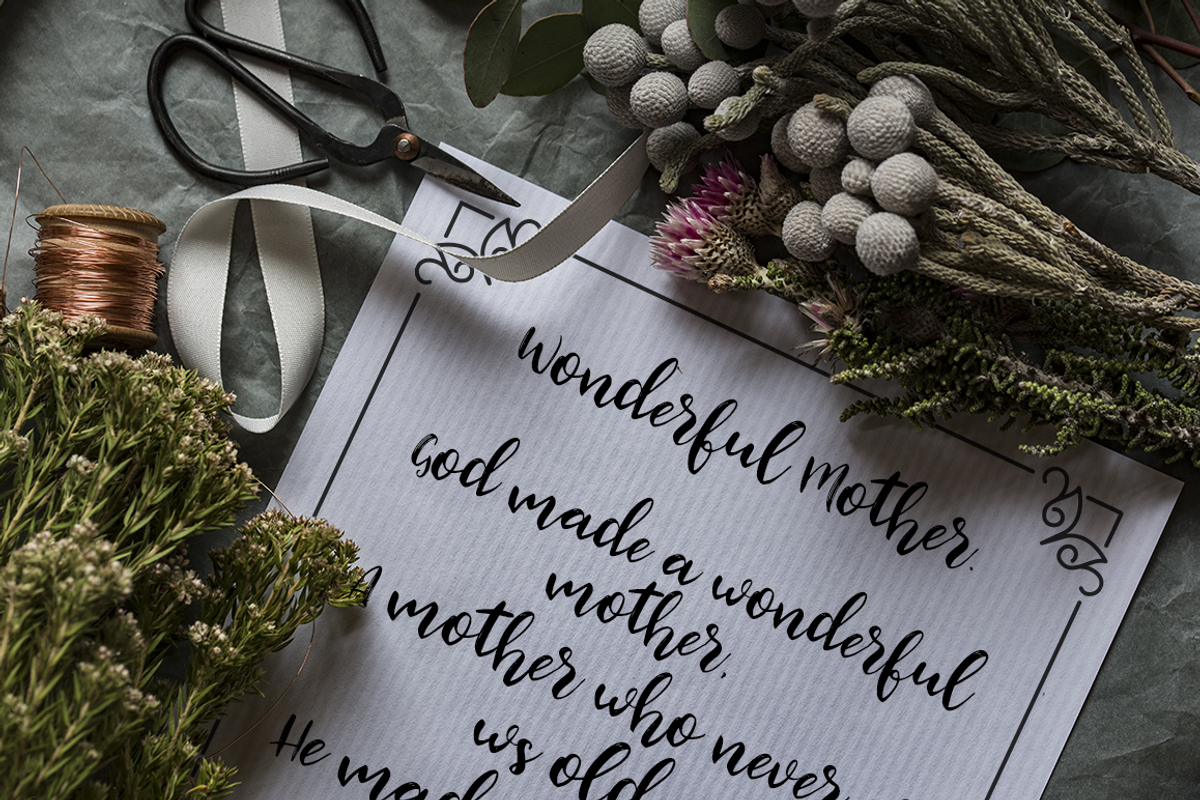 Wonderful Mother.
God made a wonderful
mother,
A mother who never
ws old
He mad